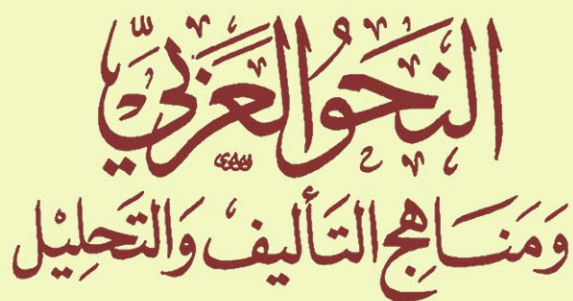 النَحوُ العَرَبيّ
وَمَنَاهِج التَأليف وَالتَحلِيْل